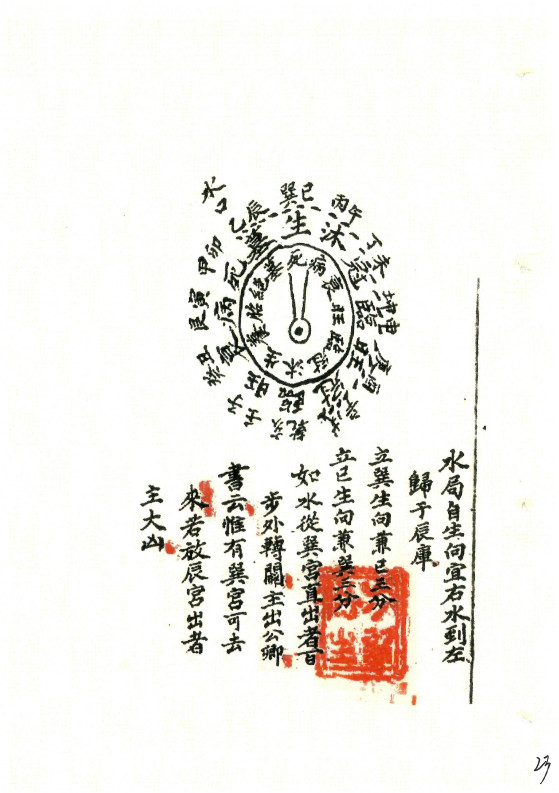 水局自生向宜右水到左
歸于辰庫
立巽生向兼巳三分
立巳生向兼巽三分
如水從巽宮直出者百
步外轉關主出公卿
書云惟有巽宮可去
來若放辰宮出者
主大凶
水口
巽巳
丙午
丁未
坤申
庚酉
乾亥
壬子
癸丑
艮寅
甲卯
乙辰
生沐冠臨旺
病死墓
墓死病衰旺臨冠沐生養胎絕
23